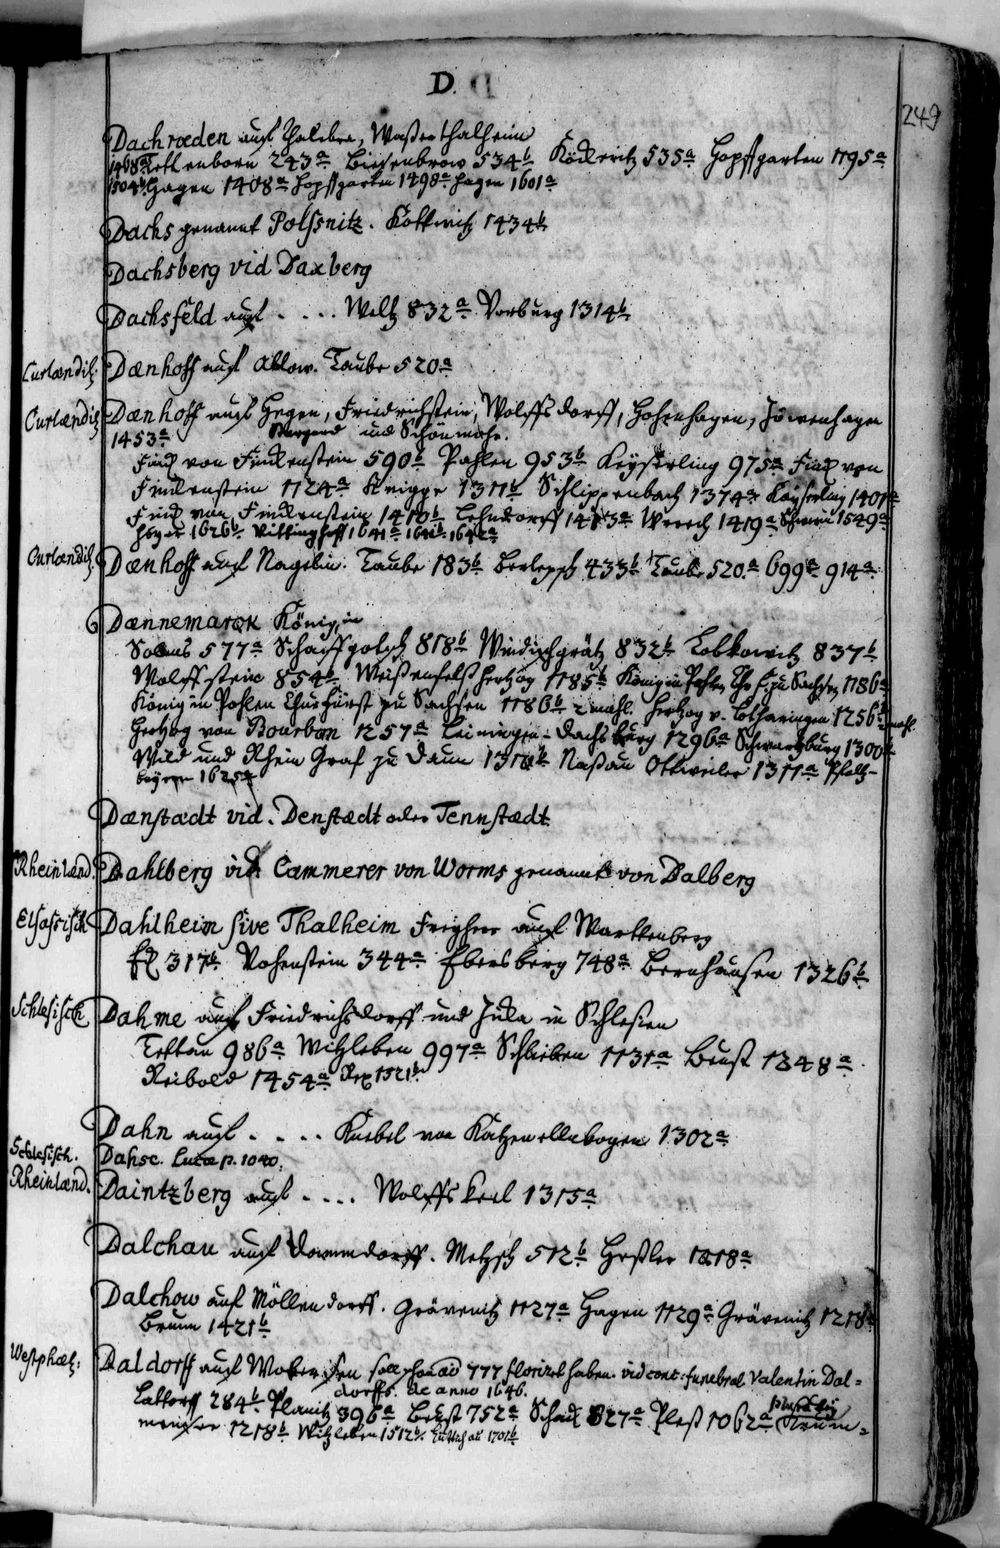 D.
249
Dachrœden auf Thaleben, Waßerthalheim
1468a Kettenborn 243a Biesenbrow 534b Köckritz 535a Hopffgarten 1195a
1504b Hagen 1408a Hopffgarten 1498a Hagen 1601a
Dachs genannt Polssnitz. Kottwitz 1434b
Dachsberg vid Daxberg
Dachsfeld auf .... Weltz 832a Vorburg 1314b
Curlændis: Dænhoff auf Ablow. Taube 520a
Curlændis Dænhoff auf Hegen, Friedrichstein, Wolffsdorff, Hohenhagen, Löwenhagen
1453a und Schönmohr.
Finck von Finckenstein 590b Pahlen 953b Keyserling 975a Finck von
Finckenstein 1124a Knigge 1311b Schlippenbach 1374a Kayserling 1401a
Finck von Finckenstein 1410b Lehndorff 1413a Wreech 1419a Schwerin 1549a
Hoym 1626b Vittinghoff 1641a 1641b 1642a
Curlændis Dænhoff auf Nagelin. Taube 183b Berlepsch 433b Taube 520.a 699a 914a
Dænnemarck König in
Solms 577a Schaffgotsch 818b Windischgrätz 832b Lobkowitz 837b
Wolffstein 854b Weißenfelß Hertzog 1185b König in Pohlen Chf. zu Sachsen 1186a
König in Pohlen Churfürst zu Sachsen 1186b 2 mahl. Hertzog v. Lotharingen 1256b mahl.
Hertzog von Bourbon 1257a Leiningen-Dachsburg 1296a Schwartzburg 1300b
Wild und Rhein Graf zu Daun 1310b Naßau Ottweiler 1311a Pfaltz-
beyern 1625a
Dænstædt vid. Denstædt oder Tennstædt
Rheinlænd. Dahlberg vid Cammerer von Worms genannt von Dalberg
Elsassisch Dahlheim sive Thalheim Freyherr auf Warttenberg
317b Vohenstein 344a Ebersberg 748a Bernhausen 1326b
Schlesisch Dahme auf Friedrichsdorff und in Schlesien
Tettau 986a Witzleben 997a Schlieben 1131a Beust 1248a
Reibold 1454a Rex 1521b
Dahn auf .... Knebel von Katzenellnbogen 1302a
Schlesisch. Dahse. Lucæ p. 1040.
Rheinlænd. Daintzberg auf .... Wolffskeel 1315a
Dalchau auf Dammdorff. Metzsch 512b Heßler 1218a
Dalchow auf Möllendorff. Grävenitz 1127a Hagen 1129a Grävenitz 1218a
Brunn 1421b
Westphæl: Daldorff auf Wotersen soll schon ao 777 florirt haben. vid conc: funebral Valentin Dal=
dorffs. de anno 1646.
Lattorff 284b Planitz 396a Beust 752a Schack 827a Pleß 1062a Krum=
1218b Witzleben 1512b 1701b